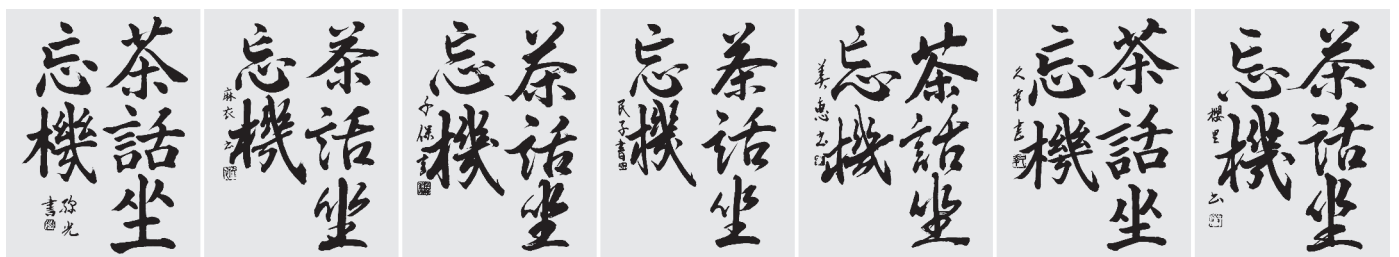 茶話坐
忘機
弥光
書
茶話坐
忘機
麻衣
書
茶話坐
忘機
千保書
茶話坐
忘機
民子書
茶話坐
忘機
美恵書
茶話坐
忘機
久幸書
茶話坐
忘機
櫻里
書